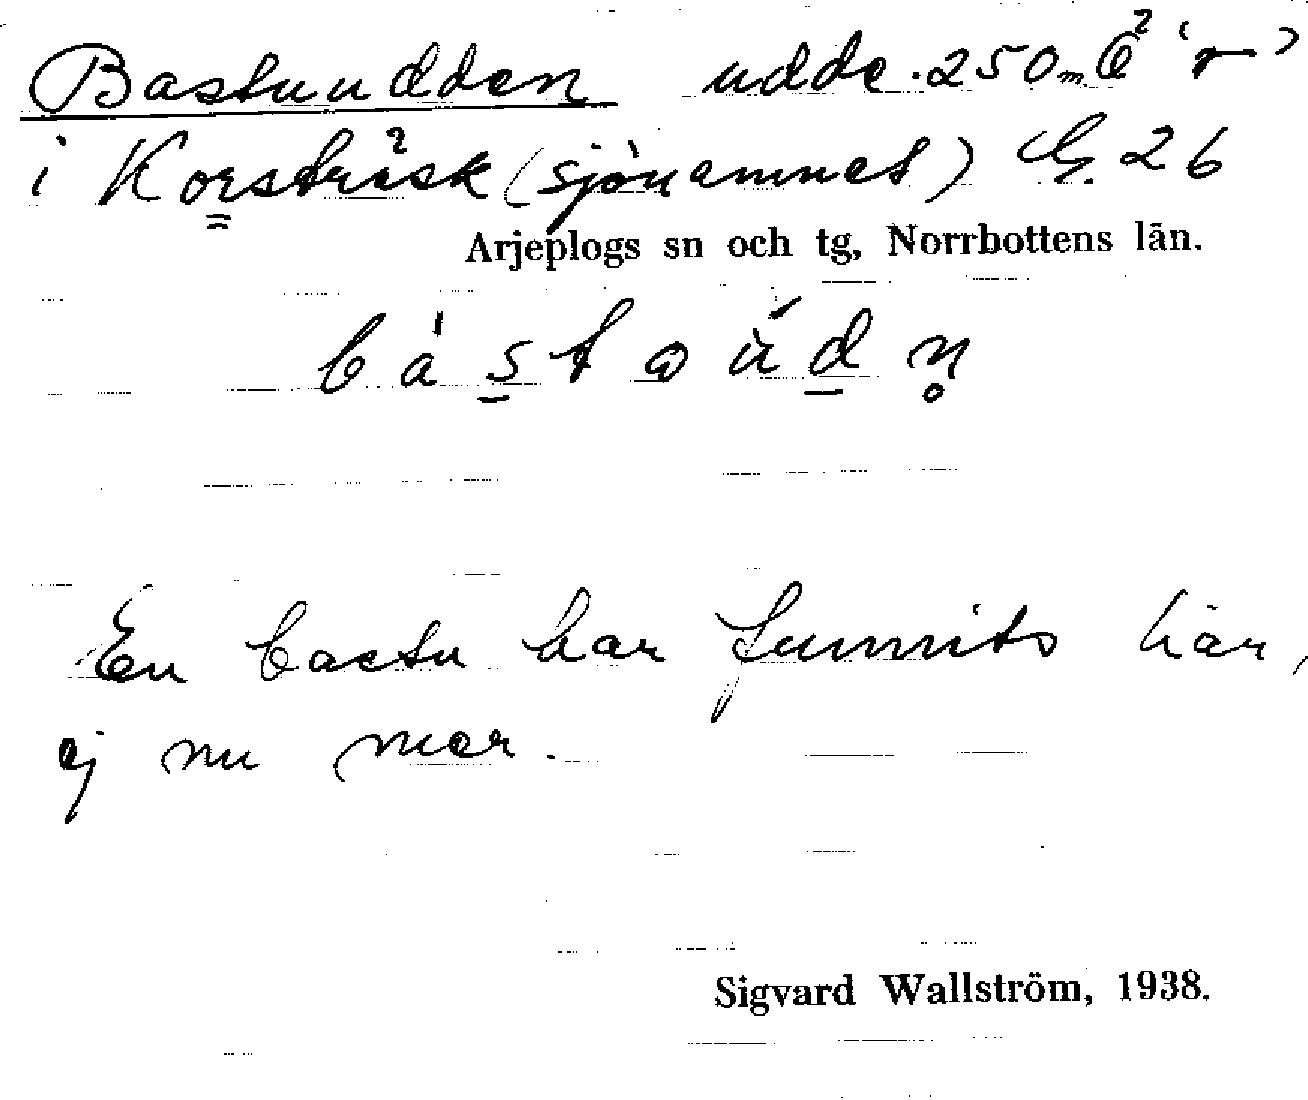 Bastuudden udde. 250 m Ö
i Korsträsk (sjönamnet) G. 26
Arjeplogs sn och tg, Norrbottens län.
En bastu har funnits här,
ej nu mer.
Sigvard Wallström, 1938.